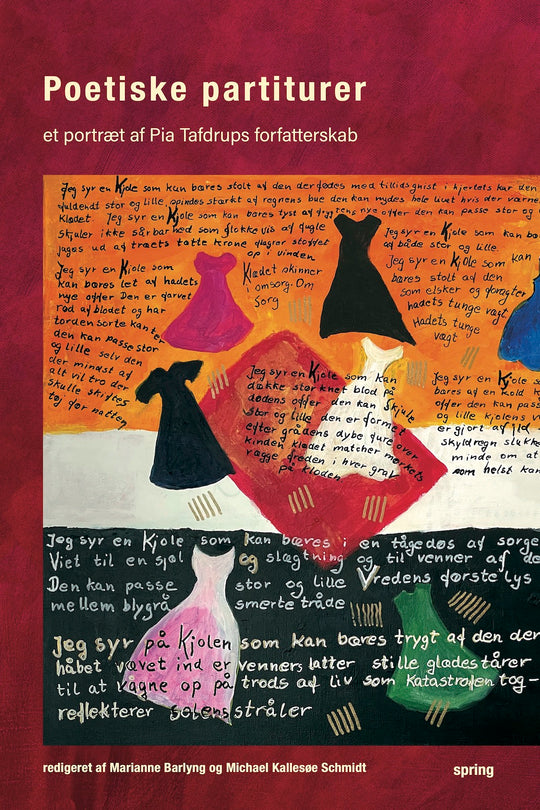 Poetiske partiturer
et portræt af Pia Tafdrups forfatterskab
Jeg syr en Kjole som kan bæres stolt af den der fødes med tillidsgnist i hjertets kar den
fuldendt stor og lille, spindes stærkt af regnens bue den kan nydes hele livet hvis der værnes
Klædet. Jeg syr en Kjole som kan bæres lyst af nye offer den kan passe stor og
skjuler ikke sårbarhed som flokkevis af fugle
jages ud af træets tatte krone flagrer stoffet
op i vinden
Jeg syr en Kjole som kan bæ
af både stor og lille.
Jeg syr en Kjole som kan
bæres stolt af den
som elsker og foragter
hadets tunge vægt
Hadets tunge
vægt
Jeg syr en Kjole som
kan bæres let af hadets
nye offer Den er farvet
rød af blodet og har
tordensorte kanter
den kan passe stor
og lille selv den
der mindst af
alt vil tro der
skulle skiftes
tøj før natten
Klædet skinner
i omsorg. Om
Sorg
Jeg syr en Kjole som kan
dække størknet blod på
dødens offer den kan skjule
Stor og lille den er formet
efter grådens dybe fure over
kinden klædet matcher mørkets
vægge freden i hver grav
på kloden
Jeg syr en Kjole s
bæres af en hold k
offer den kan pass
og lille kjolens v
er gjort af ild
skyldregn slukke
minde om at
som helst kan
Jeg syr en Kjole som kan bæres i en tågedøs af sorge
Viet til en sjæl og slægtning og til venner af de
Den kan passe stor og lille Vredens første lys
mellem blygrå smerte tråde
Jeg syr på Kjolen som kan bæres trygt af den der
håbet vævet ind er venners latter stille glædestårer
til at vågne op på trods af liv som Katastrofen tog-
reflekterer solens stråler
redigeret af Marianne Barlyng og Michael Kallesøe Schmidt
spring